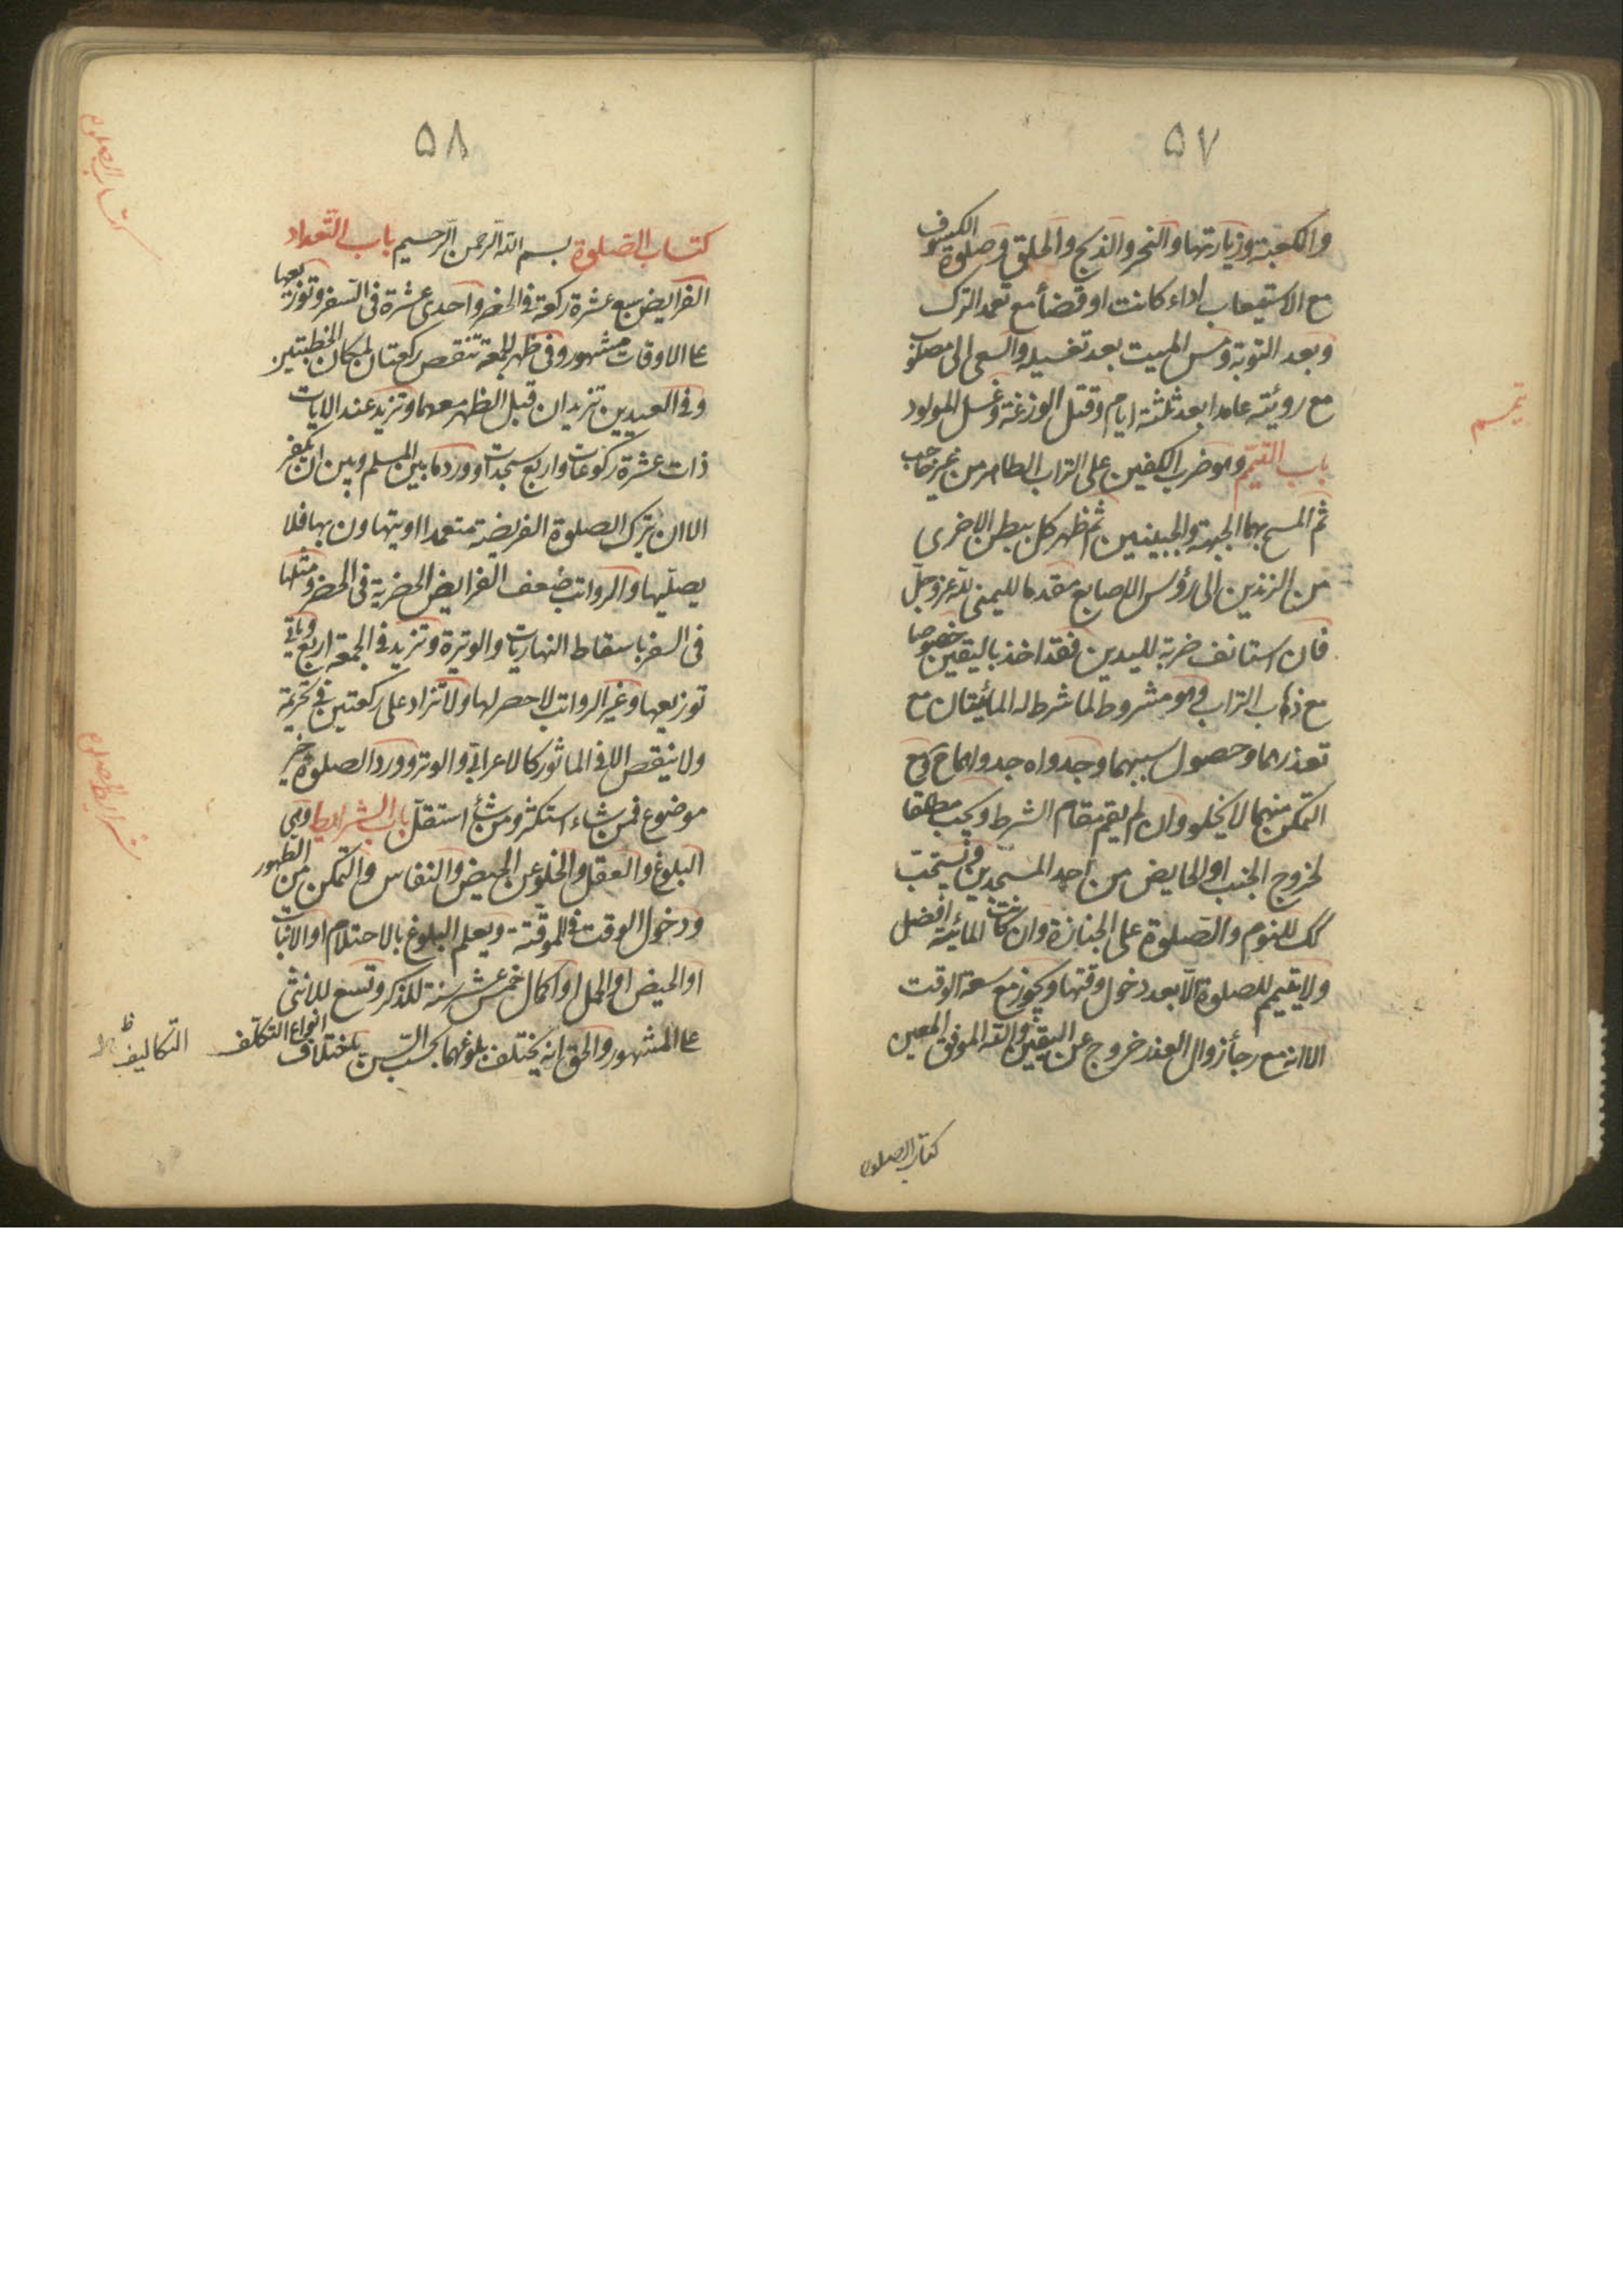 ۵۷
والكعبة وزيارتها والنحر والذبح والحلق وصلوة الكسوف
مع الاستيعاب اداء كانت او قضأ مع تعمد الترك
وبعد التوبة ومس الميت بعد تغسيله والسعى الى مصلوب
مع رويته عامدا بعد ثلثة ايام وقتل الوزغة وغسل المولود
باب التيمّم وهو ضرب الكفين على التراب الطاهر من غير حاجب
ثم المسح بهما الجبهة والجبينين ثم ظهر كل ببطن الاخرى
من الزندين الى رؤس الاصابع مقدما لليمنى لله عز وجلّ
فان استانف ضربة لليدين فقد اخذ باليقين خصوصا
مع ذهاب التراب وهو مشروط لما شرط له المائيتان مع
تعذرهما وحصول سببهما وجدواه جدواهما ومع
التمكن منهما لا يخلو وان لم يقم مقام الشرط ويجب مطلقا
لخروج الجنب او الحايض من احد المسجدين ويستحب
كك للنوم والصلوة على الجنازة وان كانت المائية افضل
ولا يتيمم للصلوة الّا بعد دخول وقتها ويجوز مع سعة الوقت
الا انه مع رجأ زوال العذر خروج عن اليقين والله الموفق المعين
كتاب الصلوة
تيمم
۵۸
كتاب الصلوة بسم الله الرحمن الرحيم باب التعداد
الفرايض سبع عشرة ركعة في الحضر واحدى عشرة في السفر وتوزيعها
على الاوقات مشهور وفى ظهر الجمعة تنقص ركعتان لمكان الخطبتين
وفى العيدين تزيد ان قبل الظهر معهما وتزيد عند الايات
ذات عشرة ركوعات واربع سجدات وورد ما بين المسلم وبين ان يكفر
الا ان يترك الصلوة الفريضة متعمدا او يتهاون بها فلا
يصلّيها والرواتب ضعف الفرايض الحضرية في الحضر ومثلها
في السفر باسقاط النهاريات والوتيرة وتزيد في الجمعة اربع وياتى
توزيعها وغير الرواتب لا حصر لها ولا تزاد على ركعتين في تحريمة
ولا ينقص الا في الماثور كالاعرابي والوتر وورد الصلوة خير
موضوع فمن شاء استكثر ومن شأ استقلّ باب الشرايط وهى
البلوغ والعقل والخلو عن الحيض والنفاس والتمكن من الطهور
ودخول الوقت في الموقّتة ويعلم البلوغ بالاحتلام او الانبات
او الحيض او الحمل او اكمال خمس عشر سنة للذكر وتسع للانثى
على المشهور والحق انه يختلف بلوغهما بحسب السّن باختلاف انواع التكلف
التكاليف ظ
كتاب الصلوة
شرايط الصلوة